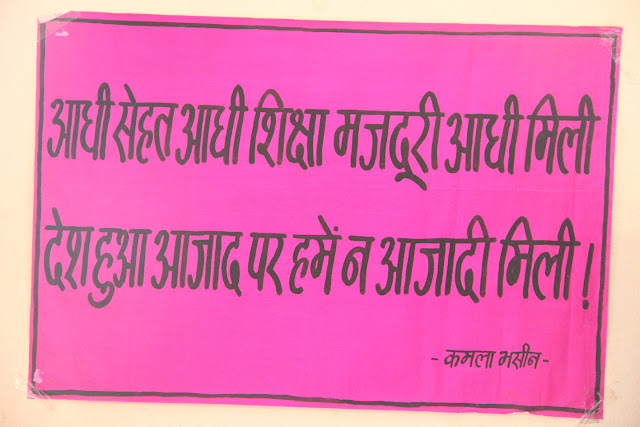 आधी सेहत आधी शिक्षा मजदूरी आधी मिली
देश हुआ आजाद पर हमें न आजादी मिली!
- कमला भसीन -